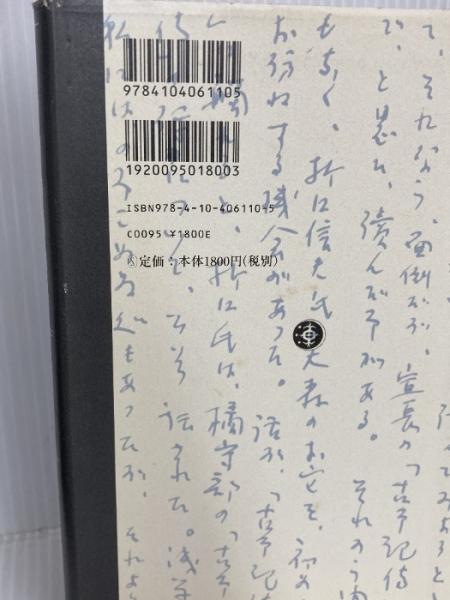 9784104061105
1920095018003
ISBN978-4-10-406110-5
C0095 ¥1800E
定価：本体1800円(税別)
て、それなら、面倒だが、宣長の「古事記傳
で、と思ひ、讀んだ事がある。それから間
もなく、折口信夫氏の大森のお宅を、初め
お訪ねする機会があつた。話が、「古事記傳
れると、折口氏は、橘守部の「古事
話された。浅学
私にはのみこめぬ處もあつたが、それよ